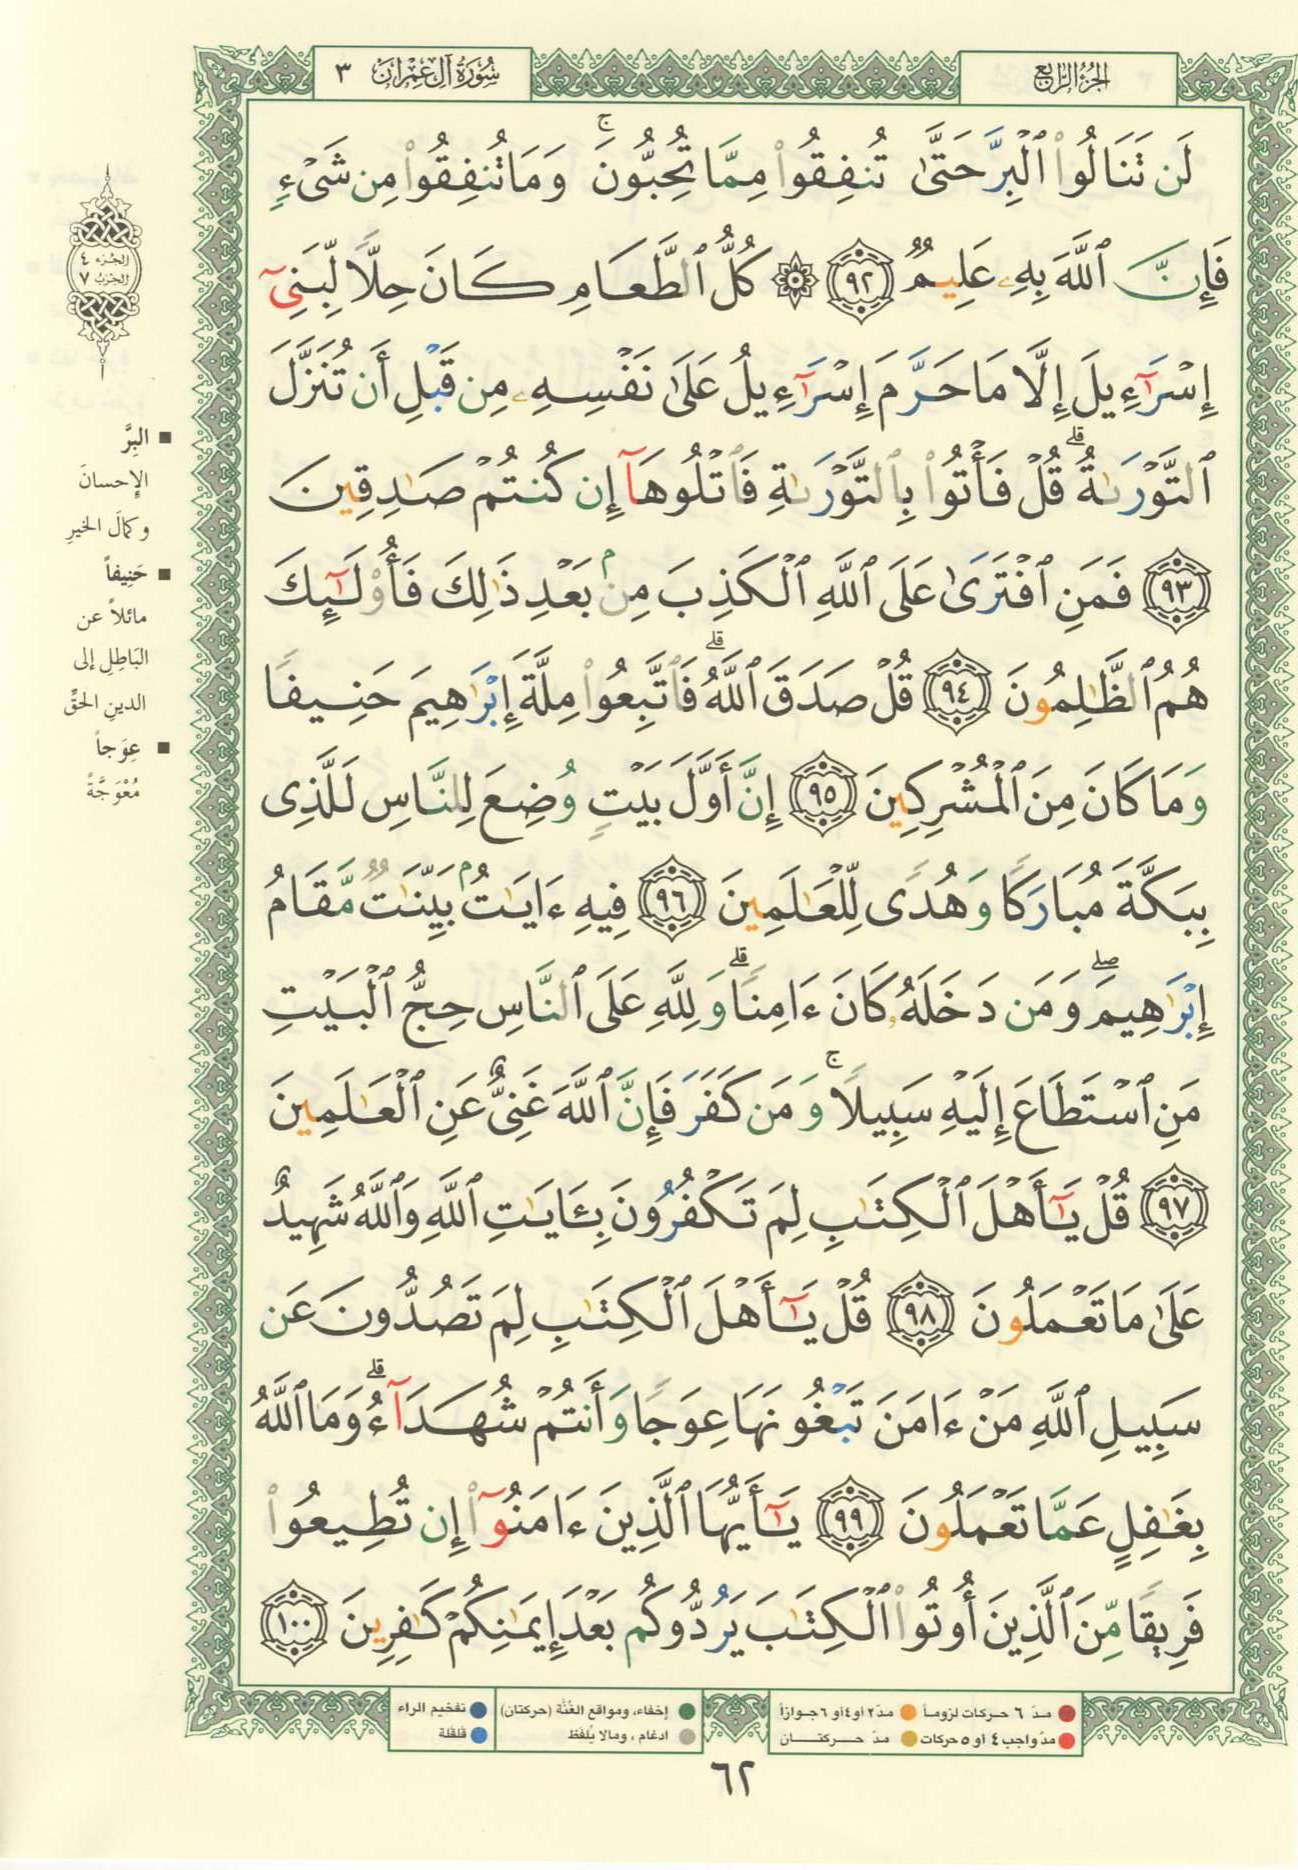 الجزء الرابع
سورة آل عمران ٣
لَن تَنَالُوا۟ ٱلْبِرَّ حَتَّىٰ تُنفِقُوا۟ مِمَّا تُحِبُّونَ ۚ وَمَا تُنفِقُوا۟ مِن شَىْءٍ
فَإِنَّ ٱللَّهَ بِهِۦ عَلِيمٌ ٩٢ ۞ كُلُّ ٱلطَّعَامِ كَانَ حِلًّا لِّبَنِىٓ
إِسْرَٰٓءِيلَ إِلَّا مَا حَرَّمَ إِسْرَٰٓءِيلُ عَلَىٰ نَفْسِهِۦ مِن قَبْلِ أَن تُنَزَّلَ
ٱلتَّوْرَىٰةُ ۗ قُلْ فَأْتُوا۟ بِٱلتَّوْرَىٰةِ فَٱتْلُوهَآ إِن كُنتُمْ صَٰدِقِينَ
٩٣ فَمَنِ ٱفْتَرَىٰ عَلَى ٱللَّهِ ٱلْكَذِبَ مِنۢ بَعْدِ ذَٰلِكَ فَأُو۟لَٰٓئِكَ
هُمُ ٱلظَّٰلِمُونَ ٩٤ قُلْ صَدَقَ ٱللَّهُ ۗ فَٱتَّبِعُوا۟ مِلَّةَ إِبْرَٰهِيمَ حَنِيفًا
وَمَا كَانَ مِنَ ٱلْمُشْرِكِينَ ٩٥ إِنَّ أَوَّلَ بَيْتٍ وُضِعَ لِلنَّاسِ لَلَّذِى
بِبَكَّةَ مُبَارَكًا وَهُدًى لِّلْعَٰلَمِينَ ٩٦ فِيهِ ءَايَٰتٌۢ بَيِّنَٰتٌ مَّقَامُ
إِبْرَٰهِيمَ ۖ وَمَن دَخَلَهُۥ كَانَ ءَامِنًا ۗ وَلِلَّهِ عَلَى ٱلنَّاسِ حِجُّ ٱلْبَيْتِ
مَنِ ٱسْتَطَاعَ إِلَيْهِ سَبِيلًا ۚ وَمَن كَفَرَ فَإِنَّ ٱللَّهَ غَنِىٌّ عَنِ ٱلْعَٰلَمِينَ
٩٧ قُلْ يَٰٓأَهْلَ ٱلْكِتَٰبِ لِمَ تَكْفُرُونَ بِـَٔايَٰتِ ٱللَّهِ وَٱللَّهُ شَهِيدٌ
عَلَىٰ مَا تَعْمَلُونَ ٩٨ قُلْ يَٰٓأَهْلَ ٱلْكِتَٰبِ لِمَ تَصُدُّونَ عَن
سَبِيلِ ٱللَّهِ مَنْ ءَامَنَ تَبْغُونَهَا عِوَجًا وَأَنتُمْ شُهَدَآءُ ۗ وَمَا ٱللَّهُ
بِغَٰفِلٍ عَمَّا تَعْمَلُونَ ٩٩ يَٰٓأَيُّهَا ٱلَّذِينَ ءَامَنُوٓا۟ إِن تُطِيعُوا۟
فَرِيقًا مِّنَ ٱلَّذِينَ أُوتُوا۟ ٱلْكِتَٰبَ يَرُدُّوكُم بَعْدَ إِيمَٰنِكُمْ كَٰفِرِينَ ١٠٠
الجزء ٤
الحزب ٧
■ البِرَّ
الإحسانَ
وكمالَ الخيرِ
■ حَنِيفاً
مائلاً عن
البَاطِلِ إلى
الدينِ الحقِّ
■ عِوَجاً
مُعْوَجَّةً
مدّ ٦ حركات لزوماً
مدّ٢ أو٤ أو ٦ جوازاً
مدّ واجب ٤ أو ٥ حركات
مدّ حركتان
إخفاء، ومواقع الغُنَّة (حركتان)
ادغام ، ومالا يُلفَظ
تفخيم الراء
قلقلة
٦٢